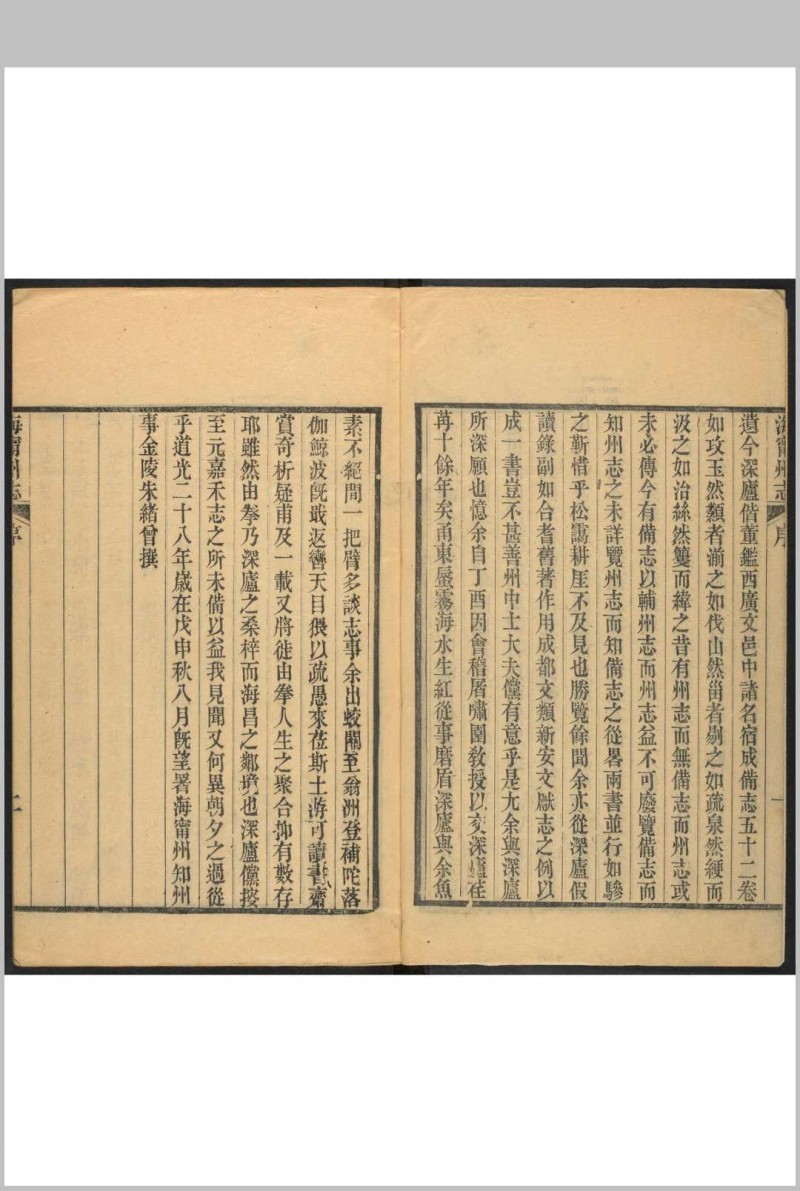 海甯州志
序
一
遺今深廬偕董鑑西廣文邑中諸名宿成備志五十二卷
如攻玉然纇者湔之如伐山然甾者剔之如疏泉然綆而
汲之如治絲然籰而緯之昔有州志而無備志而州志或
未必傳今有備志以輔州志而州志益不可廢覽備志而
知州志之未詳覽州志而知備志之從畧兩書並行如驂
之靳惜乎松靄耕厓不及見也勝覽餘聞余亦從深廬假
讀錄副如合耆舊著作用成都文類新安文獻志之例以
成一書豈不甚善州中士大夫儻有意乎是尢余與深廬
所深願也憶余自丁酉因會稽屠嘯園教授以交深廬荏
苒十餘年矣甬東蜃霧海水生紅從事磨盾深廬與余魚
素不絕間一把臂多談志事余出蛟關至翁洲登補陀落
伽鯨波旣戢返轡天目猥以疏愚來莅斯土游可讀書齋
賞奇析疑甫及一載又將徙由拳人生之聚合抑有數存
耶雖然由拳乃深廬之桑梓而海昌之鄰境也深廬儻挍
至元嘉禾志之所未備以益我見聞又何異朝夕之過從
乎道光二十八年歲在戊申秋八月旣望署海甯州知州
事金陵朱緒曾撰
海甯州志
序